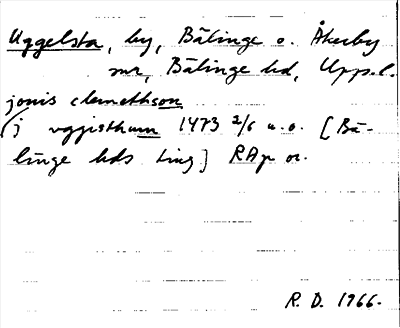 Uggelsta, by, Bälinge o. Åkerby
snr, Bälinge hd, Uppl.l.
jonis clemethson
(j vggisthum 1473 2/6 u.o. [Bä-
linge hds ting] RAp or.
R. D. 1966.